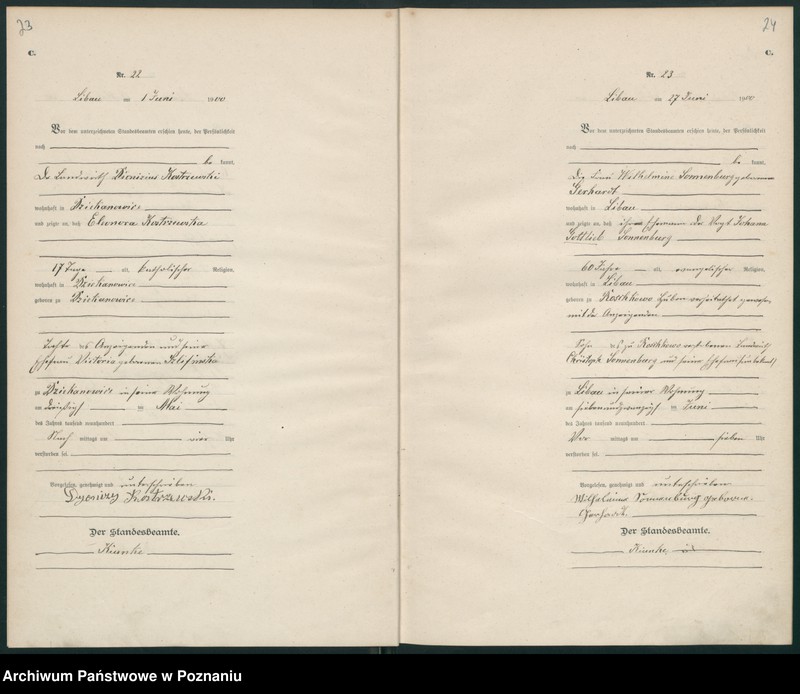 23
C.
Nr. 22
Libau am 1 Juni 1900
Vor dem unterzeichneten Standesbeamten erschien heute, der Persönlichkeit
nach
be kannt,
Der Landwirth Dionisius Kostrzewski
wohnhaft in Dziekanowice
und zeigte an, daß Eleonora Kostrzewska
17 Tage alt, katholischer Religion,
wohnhaft in Dziekanowice
geboren zu Dziekanowice
Tochter des Anzeigenden und seiner
Ehefrau Victoria geborenen
zu Dziekanowice in seiner Wohnung
am dreißigsten Mai
des Jahres tausend neunhundert
Nach mittags um vier Uhr
verstorben sei.
Vorgelesen, genehmigt und unterschrieben
Dyonizy Kostrzewski.
Der Standesbeamte.
24
C.
Nr. 23
Libau am 27 Juni 1900
Vor dem unterzeichneten Standesbeamten erschien heute, der Persönlichkeit
nach
be kannt,
Die Frau Wilhelmine Sonnenburg geborene
Gerhardt
wohnhaft in Libau
und zeigte an, daß ihr Ehemann Der Vogt Johann
Gottlieb Sonnenburg
60 Jahre alt, evangelischer Religion,
wohnhaft in Libau
geboren zu Roschkowo verheirathet gewesen
mit der Anzeigenden
Sohn des zu Roschkowo verstorbenen Landwirth
Christoph Sonnenburg und seiner Ehefrau
zu Libau in seiner Wohnung
am siebenundzwanzigsten Juni
des Jahres tausend neunhundert
Vor mittags um sieben Uhr
verstorben sei.
Vorgelesen, genehmigt und unterschrieben
Wilhelmine Sonnenburg geborene
Gerhardt.
Der Standesbeamte.
Archiwum Państwowe w Poznaniu